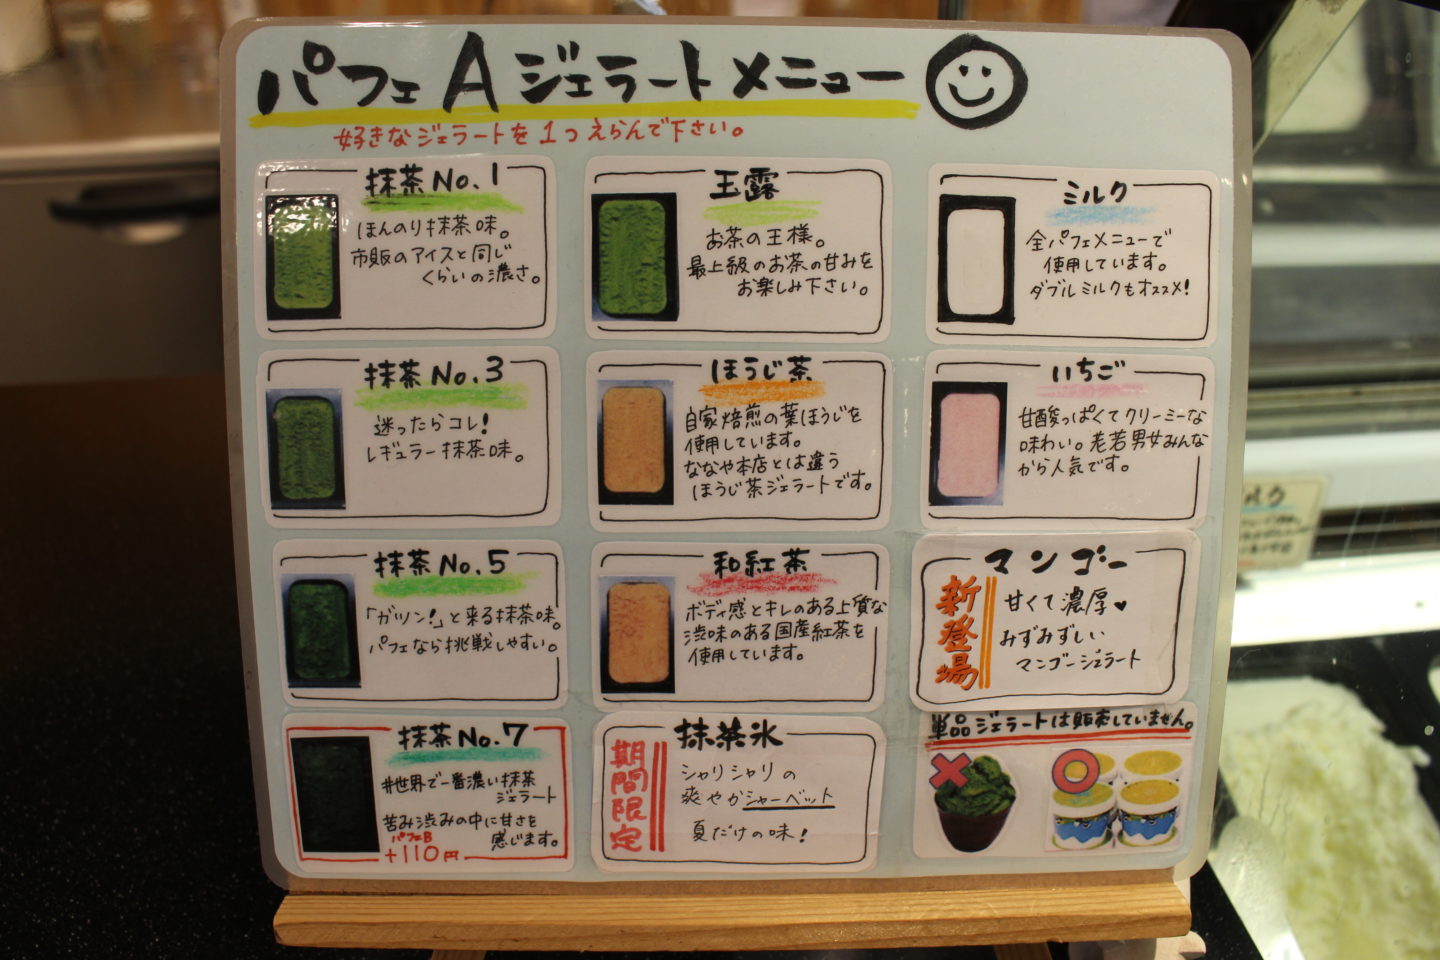 パフェA ジェラートメニュー
好きなジェラートを1つえらんで下さい。
抹茶No.1
ほんのり抹茶味。
市販のアイスと同じ
くらいの濃さ。
玉露
お茶の王様。
最上級のお茶の甘みを
お楽しみ下さい。
ミルク
全パフェメニューで
使用しています。
ダブルミルクもオススメ!
抹茶No.3
迷ったらコレ!
レギュラー抹茶味。
ほうじ茶
自家焙煎の葉ほうじを
使用しています。
ななや本店とは違う
ほうじ茶ジェラートです。
いちご
甘酸っぱくてクリーミーな
味わい。老若男女みんな
から人気です。
抹茶No.5
「ガツン!」と来る抹茶味。
パフェなら挑戦しやすい。
和紅茶
ボディ感とキレのある上質な
渋味のある国産紅茶を
使用しています。
マンゴー
新登場
甘くて濃厚♥
みずみずしい
マンゴージェラート
抹茶No.7
#世界で一番濃い抹茶
ジェラート
苦み渋みの中に甘さを
感じます。
パフェB
+110円
抹茶氷
期間限定
シャリシャリの
爽やかシャーベット
夏だけの味!
単品ジェラートは販売していません。